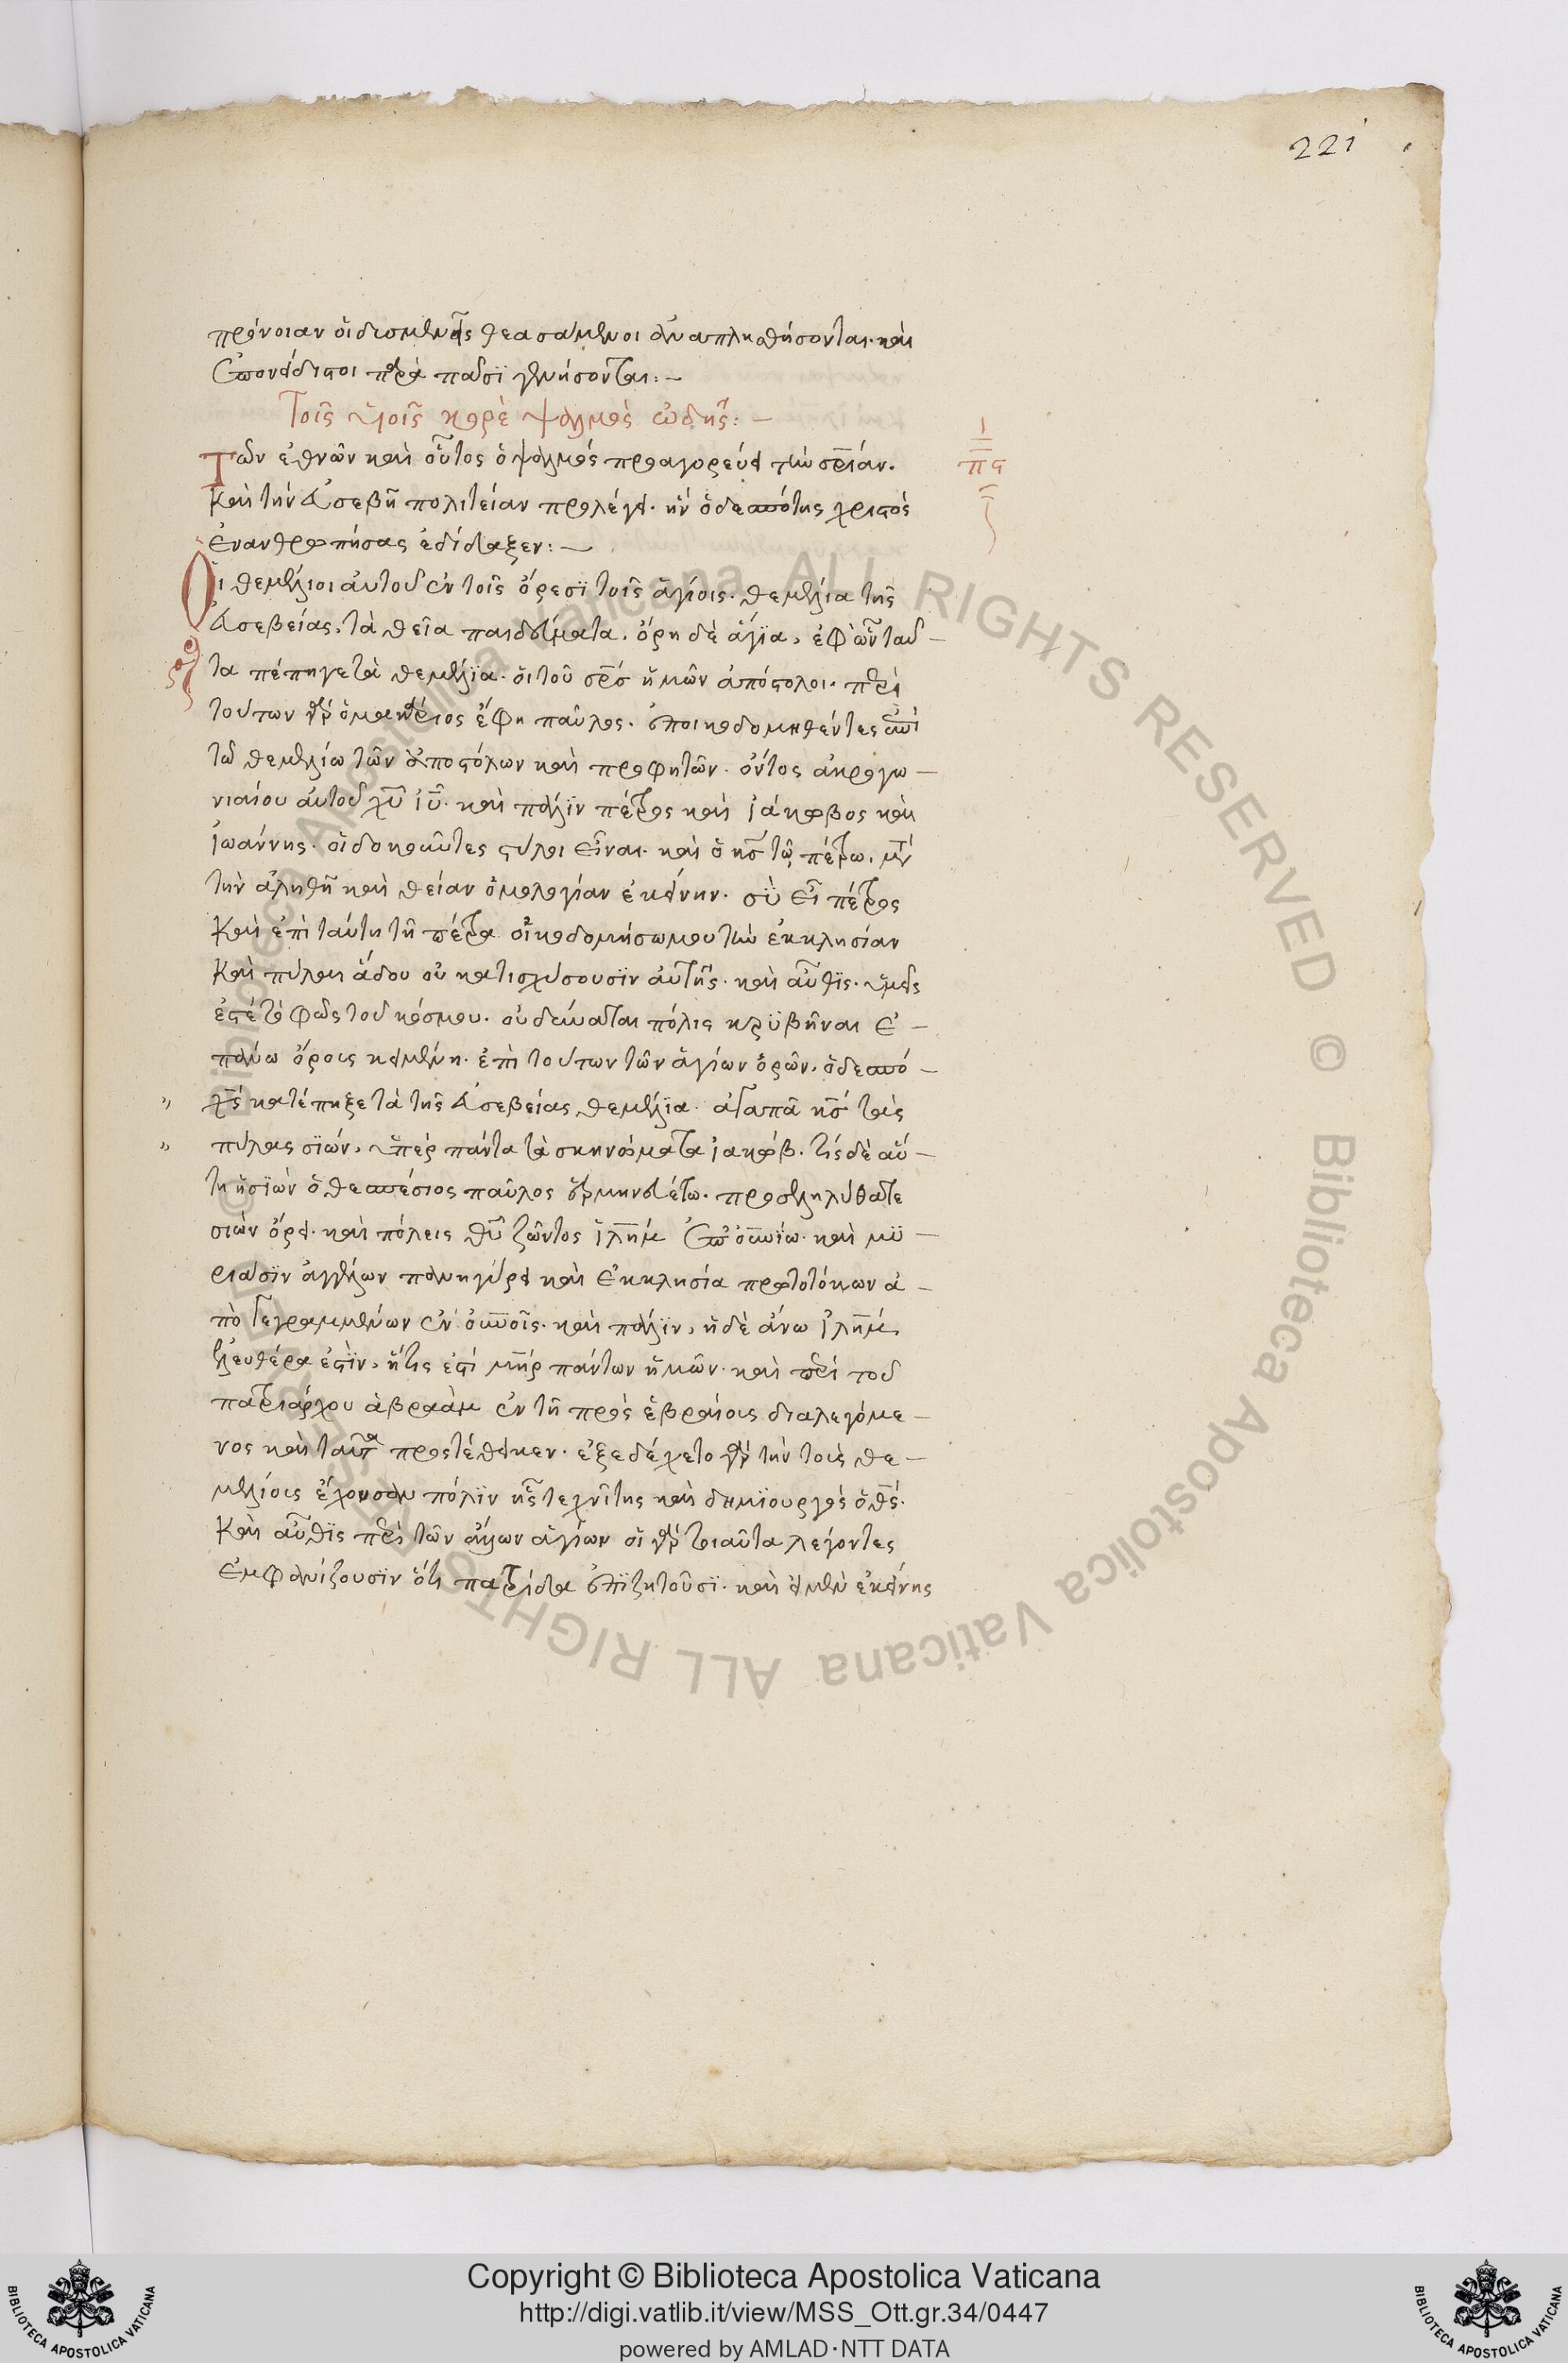 221
πρόνοιαν οἱ δυσμενεῖς θεασάμενοι ἀναπλησθήσονται. καὶ
ἐπονείδιστοι παρὰ πᾶσϊ γενήσονται: –
Τοῖς υἱοῖς κορὲ ψαλμὸς ὠδῆς: –
Τῶν ἐθνῶν καὶ οὗτος ὁ ψαλμός προαγορεύει τὴν σρίαν.
πϛ
Καὶ τὴν ἐυσεβῆ πολιτείαν προλέγει. ἣν ὁ δεσπότης χριστὸς
ἐνανθρωπήσας ἐδίδαξεν: –
Οἱ θεμέλιοι ἀυτοῦ ἐν τοῖς ὄρεσϊ τοῖς ἁγίοις. θεμέλια τῆς
ἐυσεβείας, τὰ θεῖα παιδεύματα. ὄρη δὲ ἅγϊα, ἐφ' ὧν ταῦ –
τα πέπηγε τὰ θεμέλϊα. οἱ τοῦ σρσ ἡμῶν ἀπόστολοι. περὶ
τούτων γὰρ ὁ μακάριος ἔφη παῦλος. ἐποικοδομηθέντες ἐπὶ
τῶ θεμελίω τῶν ἀποστόλων καὶ προφητῶν. ὄντος ἀκρογω –
νιαίου ἀυτοῦ χυ ιυ. καὶ πάλϊν πέτρος καὶ ἰάκωβος καὶ
ἰωάννης. οἱ δοκοῦντες στύλοι εἶναι. καὶ ὁ κσ τῷ πέτρω. μετ
τὴν ἀληθῆ καὶ θείαν ὁμολογίαν ἐκείνην. σὺ εἶ πέτρος
Καὶ ἐπὶ ταύτη τῆ πέτρα οἰκοδομήσω μου τὴν ἐκκλησίαν
Καὶ πύλαι ἅδου οὐ κατισχύσουσϊν ἀυτῆς. καὶ αὖθϊς. ὑμεῖς
ἐστέ τὸ φῶς τοῦ κόσμου. οὐ δύναται πόλις κρϋβῆναι ἐ –
πάνω ὄρους κειμένη. ἐπὶ τούτων τῶν ἁγίων ὀρῶν. ὁ δεσπό –
χς κατέπηξε τὰ τῆς ἐυσεβείας θεμέλϊα. ἀγαπᾶ κς τὰς
πύλας σϊών, ὑπὲρ πάντα τὰ σκηνώματα ἰακώβ. τίς δὲ αὕ –
τη ἡ σϊὼν ὁ θεσπέσιος παῦλος ἑρμηνευέτω. προσεληλύθατε
σιὼν ὄρει. καὶ πόλεις θυ ζῶντος ϊλημ ἐπουνίω. καὶ μϋ –
ριάσϊν ἀγγέλων πανηγύρει καὶ ἐκκλησία πρωτοτόκων ἀ –
πὸ γεγραμμένων ἐν ὀυνοῖς. καὶ πάλϊν, ἡ δὲ ἄνω ϊλημ
ἐλευθέρα ἐστϊν, ἥτις ἐστὶ μηρ πάντων ἡμῶν. καὶ περὶ τοῦ
πατριάρχου ἀβραὰμ ἐν τῆ πρὸς ἑβραίοις διαλεγόμε –
νος καὶ ταῦτα προστέθεικεν. ἐξεδέχετο γὰρ τὴν τοὺς θε –
μελίοις ἔχουσαν πόλϊν ἧς τεχνίτης καὶ δημϊουργὸς ὁ θς.
Καὶ αὖθϊς περὶ τῶν ἄλλων ἁγίων οἱ γὰρ τοιαῦτα λέγοντες
ἐμφανίζουσϊν ὅτι πατρίδα ἐπϊζητοῦσϊ. καὶ εἰ μὲν ἐκείνης
© Biblioteca Apostolica Vaticana ALL RIGHTS RESERVED © Biblioteca Apostolica Vaticana ALL RIGHTS RESERVED
Copyright © Biblioteca Apostolica Vaticana
http://digi.vatlib.it/view/MSS_Ott.gr.34/0447
powered by AMLAD·NTT DATA
BIBLIOTECA APOSTOLICA VATICANA
BIBLIOTECA APOSTOLICA VATICANA